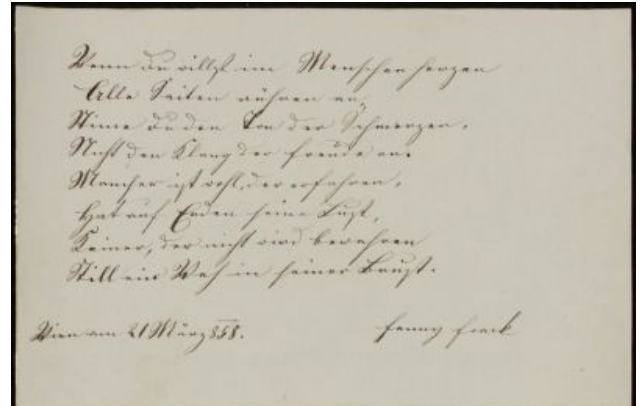 Wenn du willst im Menschenherzen
Alle Saiten rühren an,
Stime du den Ton der Schmerzen,
Nicht den Klang der Freude an.
Mancher ist wohl, der erfahren,
Hat auf Erden keine Lust,
Keiner, der nicht wird bewahren
Still ein Weh in seiner Brust.
Wien am 21 März 858.
Fanny